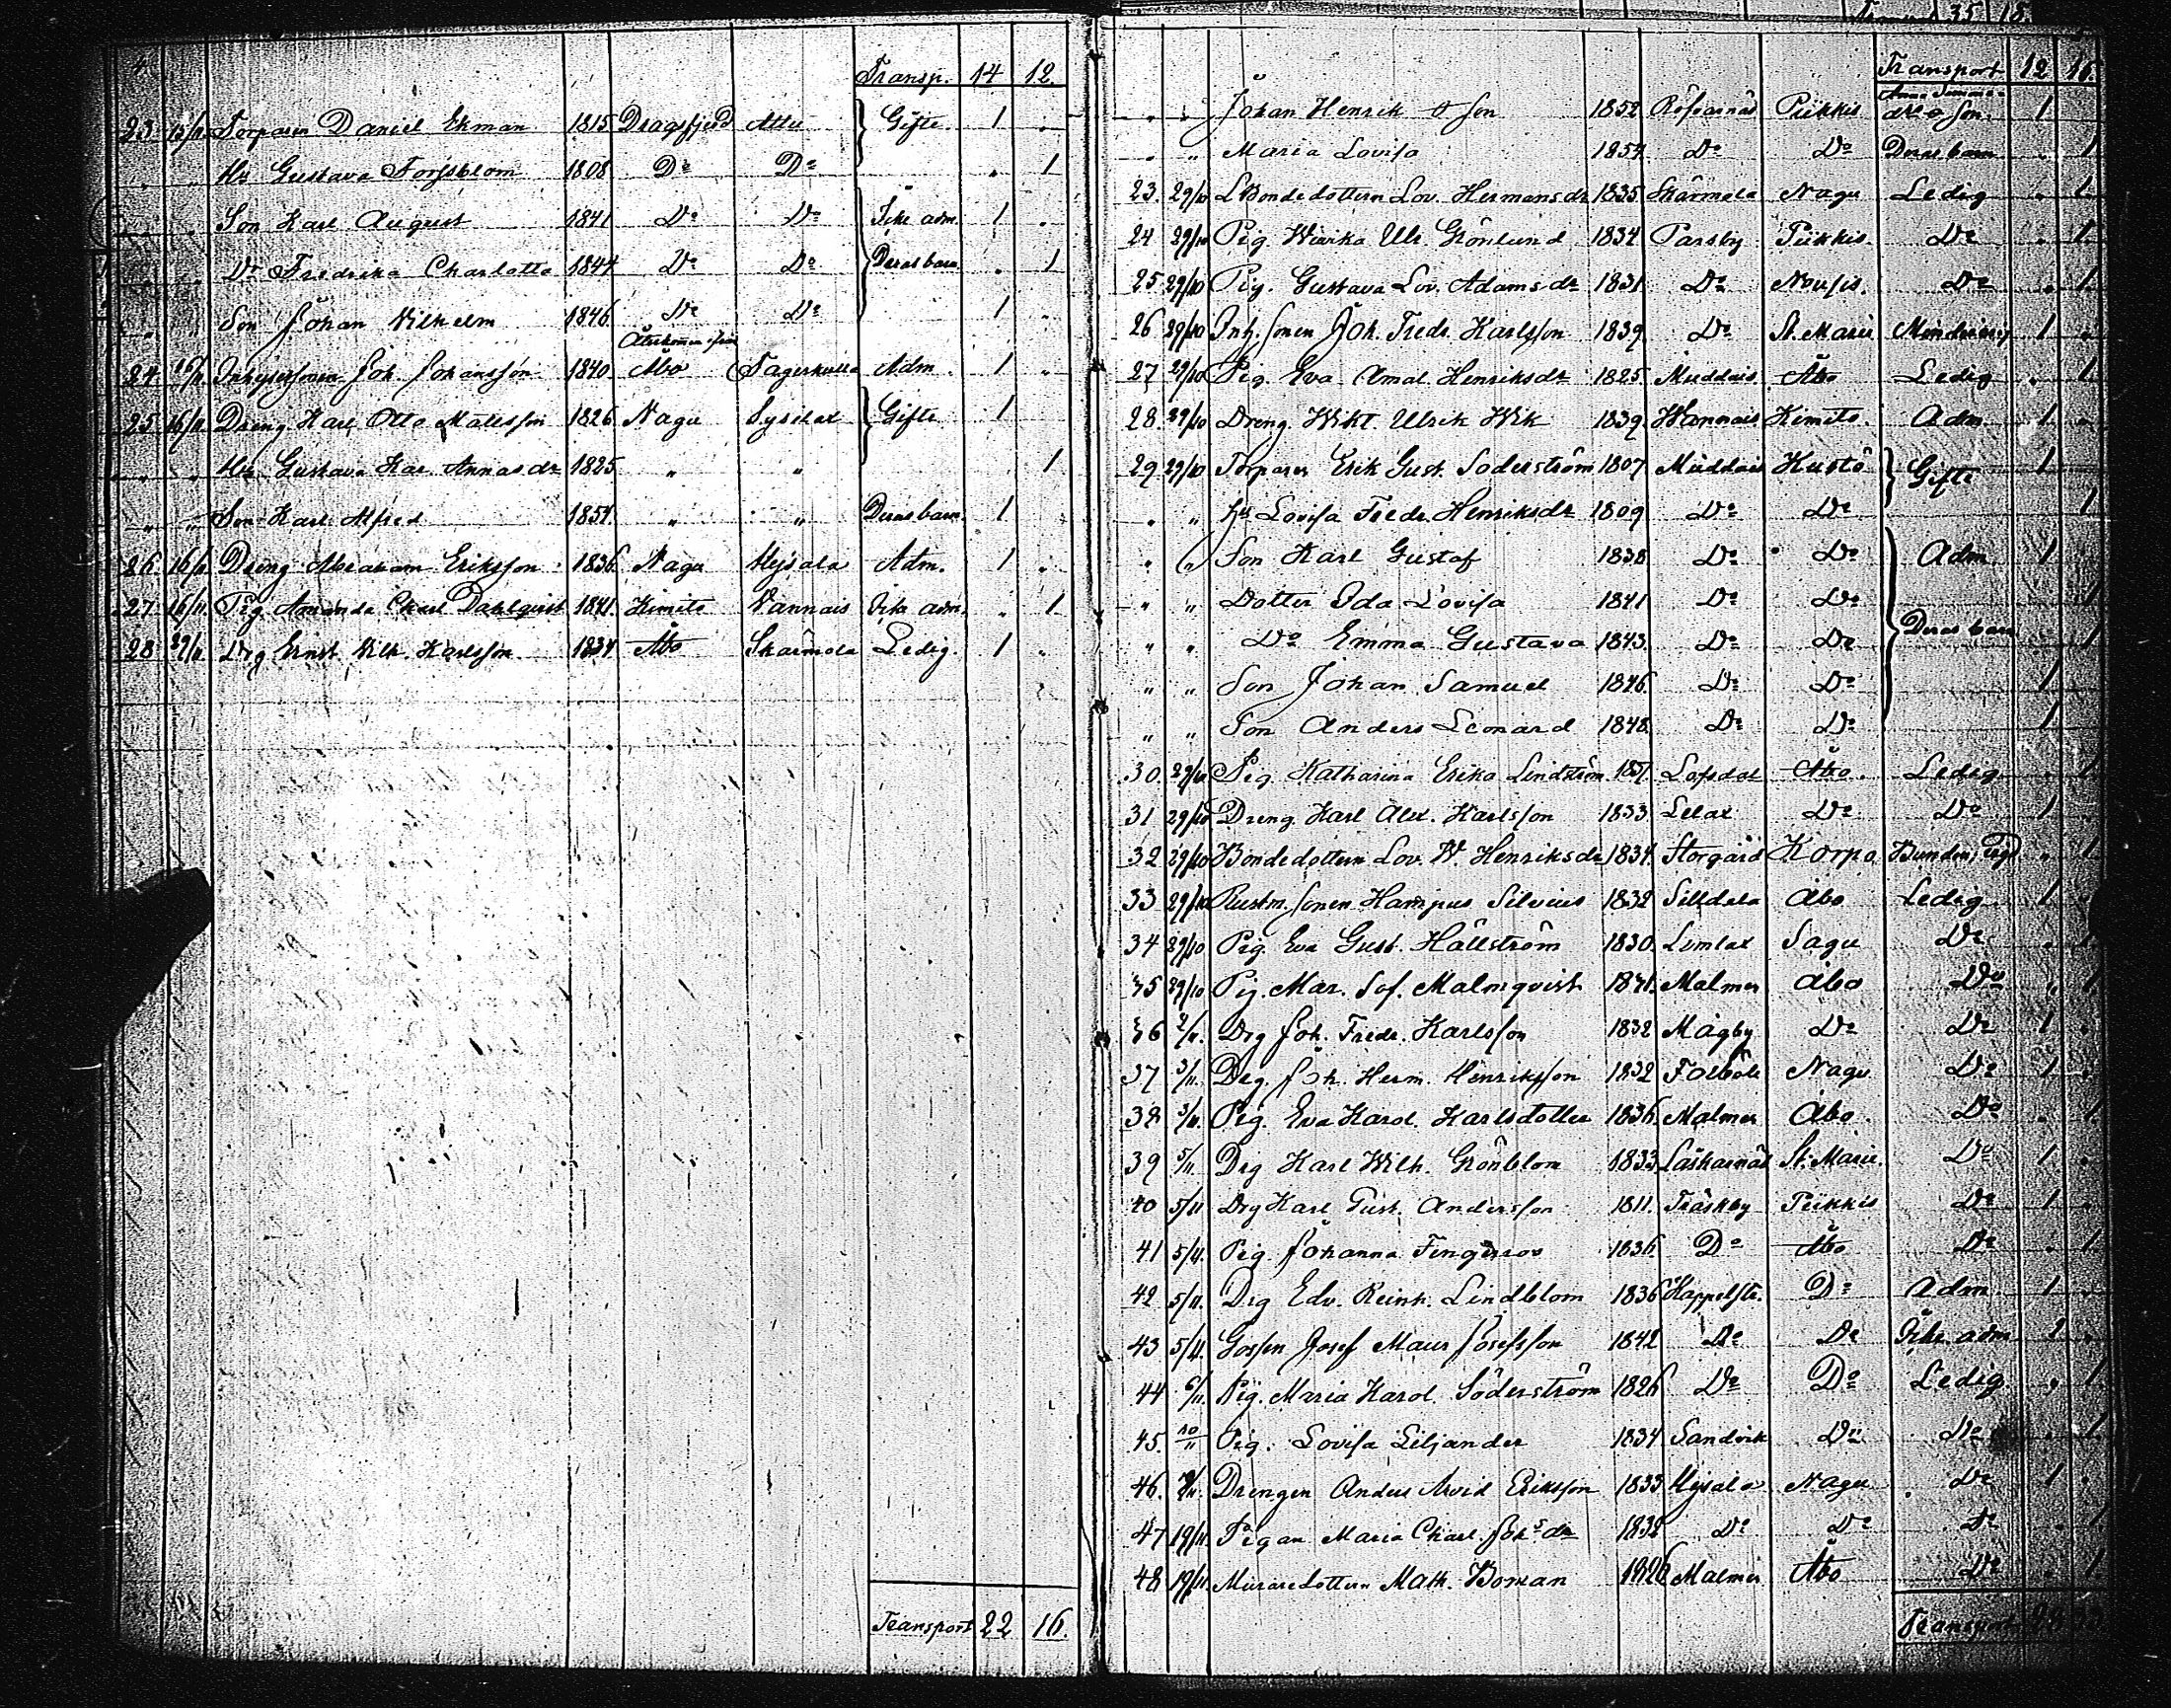 4
Transp. 14 12.
23 15/11 Torparen Daniel Ekman 1815 Dragsfjerd Attu Gifte 1 .
" " Hu Gustava Forssblom 1808 Do Do . 1
" " Son Karl August 1841 Do Do Icke adm. 1 .
" " Dr Fredrika Charlotta 1844 Do Do Deras barn . 1
" " Son Johan Vilhelm 1846. Do Do 1 .
24. 16/11 Inhysessonen Joh. Johansson 1840 Åbo Adm. 1 .
25 16/11 Dreng Karl Otto Mattsson 1826 Nagu Sysilax Gifte 1
" " Hu Gustava Kar. Annasdr 1825 " " 1
" " Son Karl Alfred 1854 " " Deras barn. 1 .
26. 16/11 Dreng Abraham Eriksson 1836. Nagu Heisala Adm. 1 .
27 16/11. Pig Amanda Charl Dahlqvist 1841. Kimito Vannais Icke adm. . 1
28 Drg Ernst Vilh. Karlsson 1834 Åbo Skärmola Ledig. 1 .
Transport 22 16.
35 18.
Transport 12 16.
" " Johan Henrik o Son 1852 Piikkis dr o Son. 1
" " Maria Lovisa 1854 Do Do Deras barn . 1
23. 29/10 Bondedottern Lov. Hermansdr 1835. Skärmola Nagu Ledig . 1.
24 29/10 Pig. Ulr. Grönlund 1834 Parsby Piikkis. Do . 1.
25 29/10 Pig. Gustava Lov. Adamsdr 1831 Do Nousis. Do . 1.
26 29/10 Inh. sonen Joh. Fredr. Karlsson 1839 Do St. Marie 1 .
27 29/10 Pig. Eva Amal. Henriksdr 1825. Muddais Åbo Ledig . 1.
28. 29/10 Dreng. Vikt. Ulrik Wik 1839. Wannais Kimito. Adm. 1 .
29 29/10 Torparen Erik Gust. Söderström 1807 Muddais Kustö Gifte 1
" " Hu Lovisa Fredr. Henriksdr 1809 Do Do 1
" " Son Karl Gustaf 1838 Do Do Adm. 1
" " Dotter Ida Lovisa 1841 Do Do 1
" " Do Emma Gustava 1843. Do Do Deras barn 1
" " Son Johan Samuel 1846. Do Do 1
" " Son Anders Leonard 1848. Do Do 1
30. 29/10 Pig. Katharina Erika Lindström. Lofsdal Åbo. Ledig . 1
31 29/10 Dreng. Karl Alex. Karlsson 1833 Lelax Do Do 1 .
32 29/10 Bondedottern Lov. W. Henriksdr 1834. Storgård Korpo . 1
33 29/10 Rustm. sonen Hampus Silvius 1832 Silldala Åbo Ledig 1
34 29/10 Pig. Eva Gust. Hällström 1830. Lemlax Sagu Do . 1
35 29/10 Pig. Mar. Sof. Malmqvist Malmen Åbo Do " 1
36 2/11. Drg Joh. Fredr. Karlsson 1832 Mågby Do Do 1 .
37 3/11. Drg. Joh. Herm. Henriksson 1832 Nagu Do 1 .
38 3/11. Pig. Eva Karol. Karlsdotter 1836. Malmen Åbo. Do . 1
39 5/11. Drg Karl Wilh. Grönblom 1833. Laskarnäs St. Marie. Do 1 .
40 5/11 Drg Karl Gust. Andersson 1811. Träskby Piikkis Do 1 .
41 5/11. Pig. Johanna 1836 Do Åbo Do . 1.
42 5/11. Drg Edv. Reinh. Lindblom 1836 Do Adm. 1 .
43 5/11. Gossen Josef Maur Josefsson 1842 Do Do Icke adm 1 .
44 6/11. Pig. Maria Karol. Söderström 1826 Do Do Ledig. . 1
45. 10/11 Pig. Lovisa Liljander 1834 Sandvik Do Do . 1
46. Drengen Anders Arvid Eriksson 1833 Heisala Nagu Do 1 .
47 19/11. Pigan Maria Charl. Johsdr 1832 Do Do Do . 1
48 19/11. Muraredottern Math. Boman 1826 Malmen Åbo Do . 1
Transport